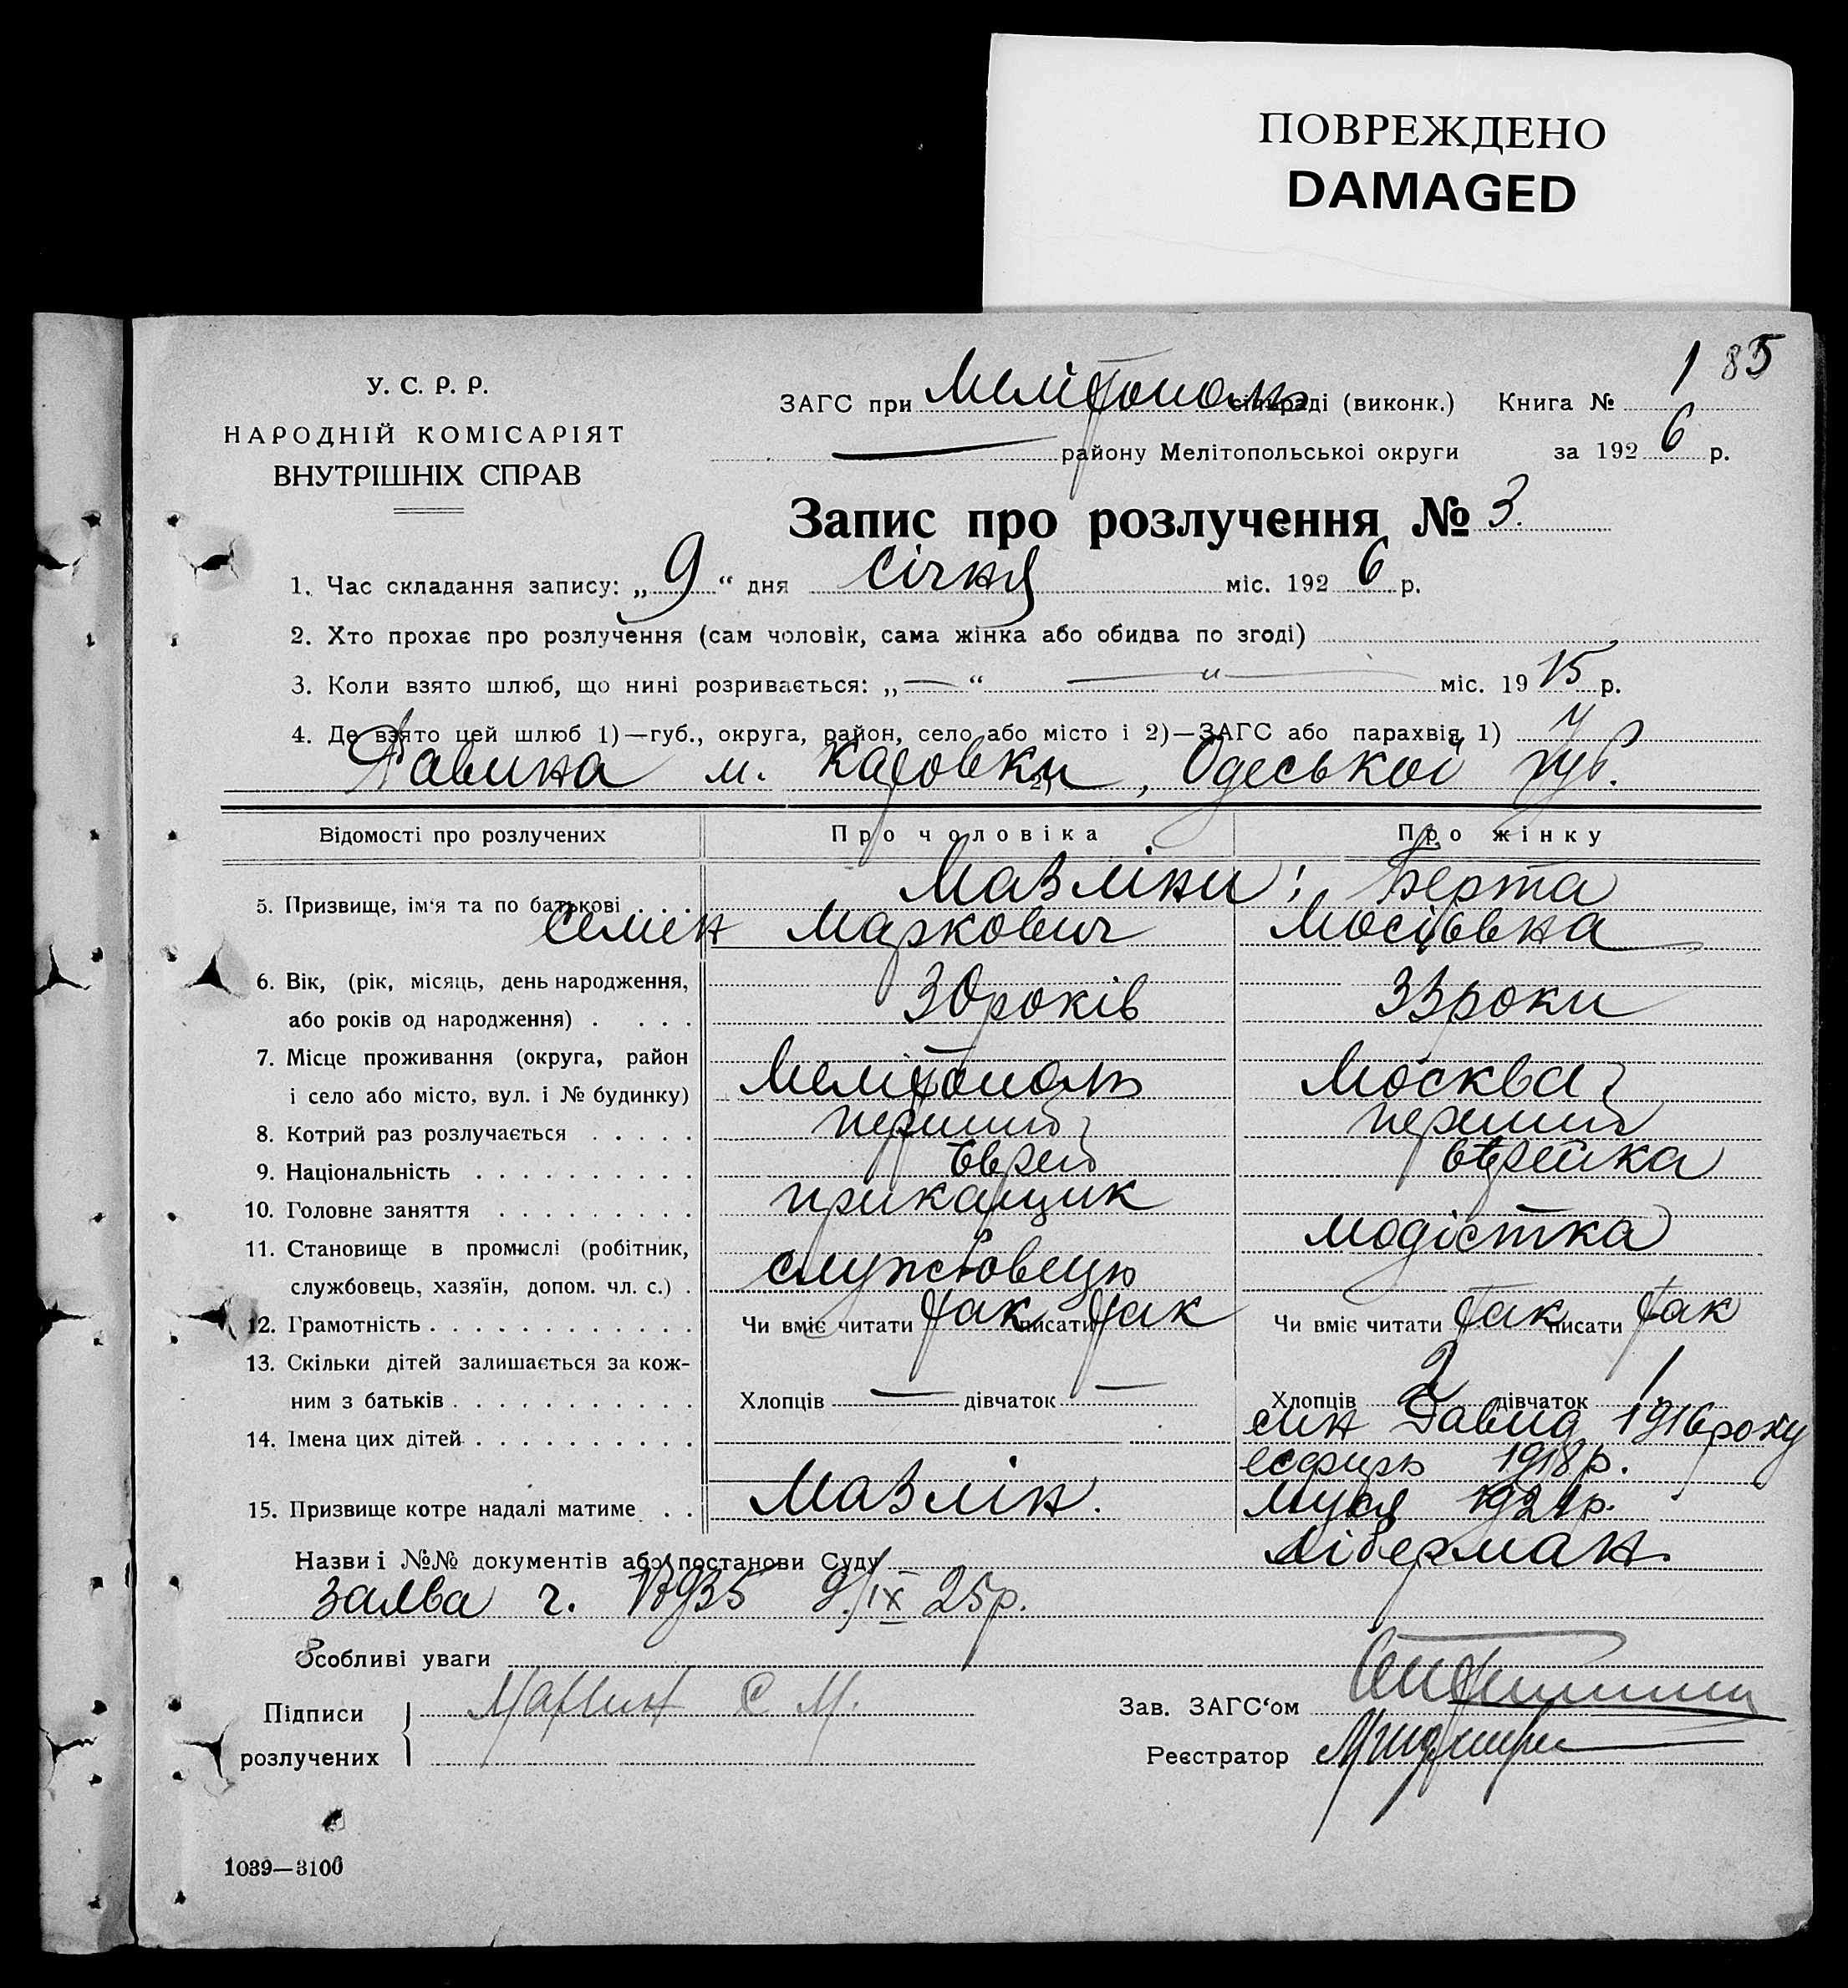 ПОВРЕЖДЕНО
DAMAGED
1 85
У. С. Р. Р.
НАРОДНІЙ КОМІСАРІЯТ
ВНУТРІШНІХ СПРАВ
ЗАГС при Мелітополь сільраді (виконк.) Книга №
району Мелітопольськоі округи за 1926 р.
Запис про розлучення № 3.
1. Час складання запису: „9“ дня Січня міс. 1926 р.
2. Хто прохає про розлучення (сам чоловік, сама жінка або обидва по згоді)
3. Коли взято шлюб, що нині розривається: „—“ — „ — міс. 1915 р.
4. Де взято цей шлюб 1)—губ., округа, район, село або місто і 2)—ЗАГС або парахвія 1) у
Равина м. Каховки, 2) Одеськоі губ.
Відомості про розлучених Про чоловіка Про жінку
Мазліни: Берта
5. Призвище, ім‘я та по батькові . . .
Семен Маркович Мосіївна
6. Вік, (рік, місяць, день народження,
або років од народження) . . . . 30 років 33 роки
7. Місце проживання (округа, район
і село або місто, вул. і № будинку) Мелітополь Москва
8. Котрий раз розлучається . . . . . перший перший
9. Національність . . . . . . . . . . Еврей еврейка
10. Головне заняття . . . . . . . . . прикащик
11. Становище в промислі (робітник, модістка
службовець, хазяїн, допом. чл. с.) . службовець
12. Грамотність . . . . . . . . . . . . Чи вміє читати так писати так Чи вміє читати так писати так
13. Скільки дітей залишається за кож-
ним з батьків . . . . . . . . . . . Хлопців — дівчаток — Хлопців 2 дівчаток 1
14. Імена цих дітей . . . . . . . . . . син Давид 1916 року
есфирь 1918 р.
15. Призвище котре надалі матиме . . Мазлін. Муся 1921 р.
Ліберман.
Назви і №№ документів або постанови Суду
заява ч. 9/IX 25 р.
Особливі уваги
Підписи
розлучених
С М.
Зав. ЗАГС‘ом
Реєстратор
1039—3100